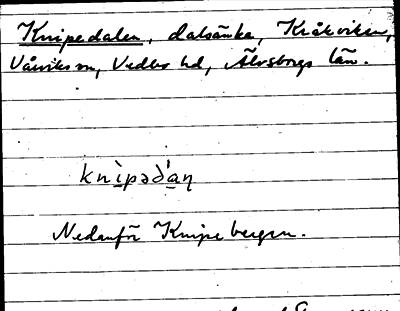 Knipedalen, dalsänka, Kråkviken,
Vårviks sn, Vedbo hd, Älvsborgs län.
knìpədáɳ
Nedanför Knipebergen.